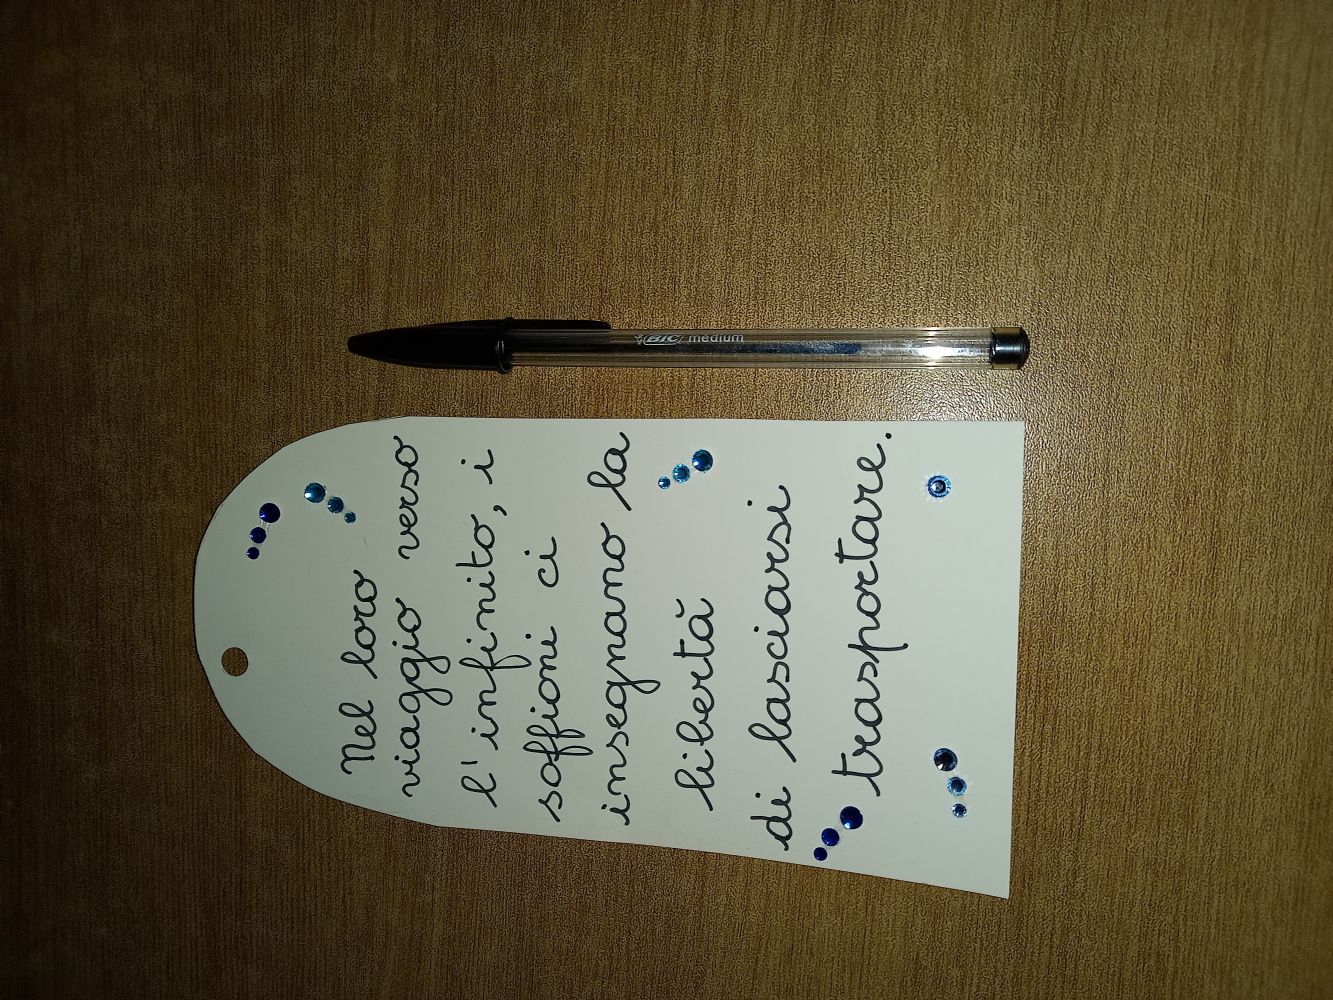 Nel loro
viaggio verso
l'infinito, i
soffioni ci
insegnano la
libertà
di lasciarsi
trasportare.
BIC medium